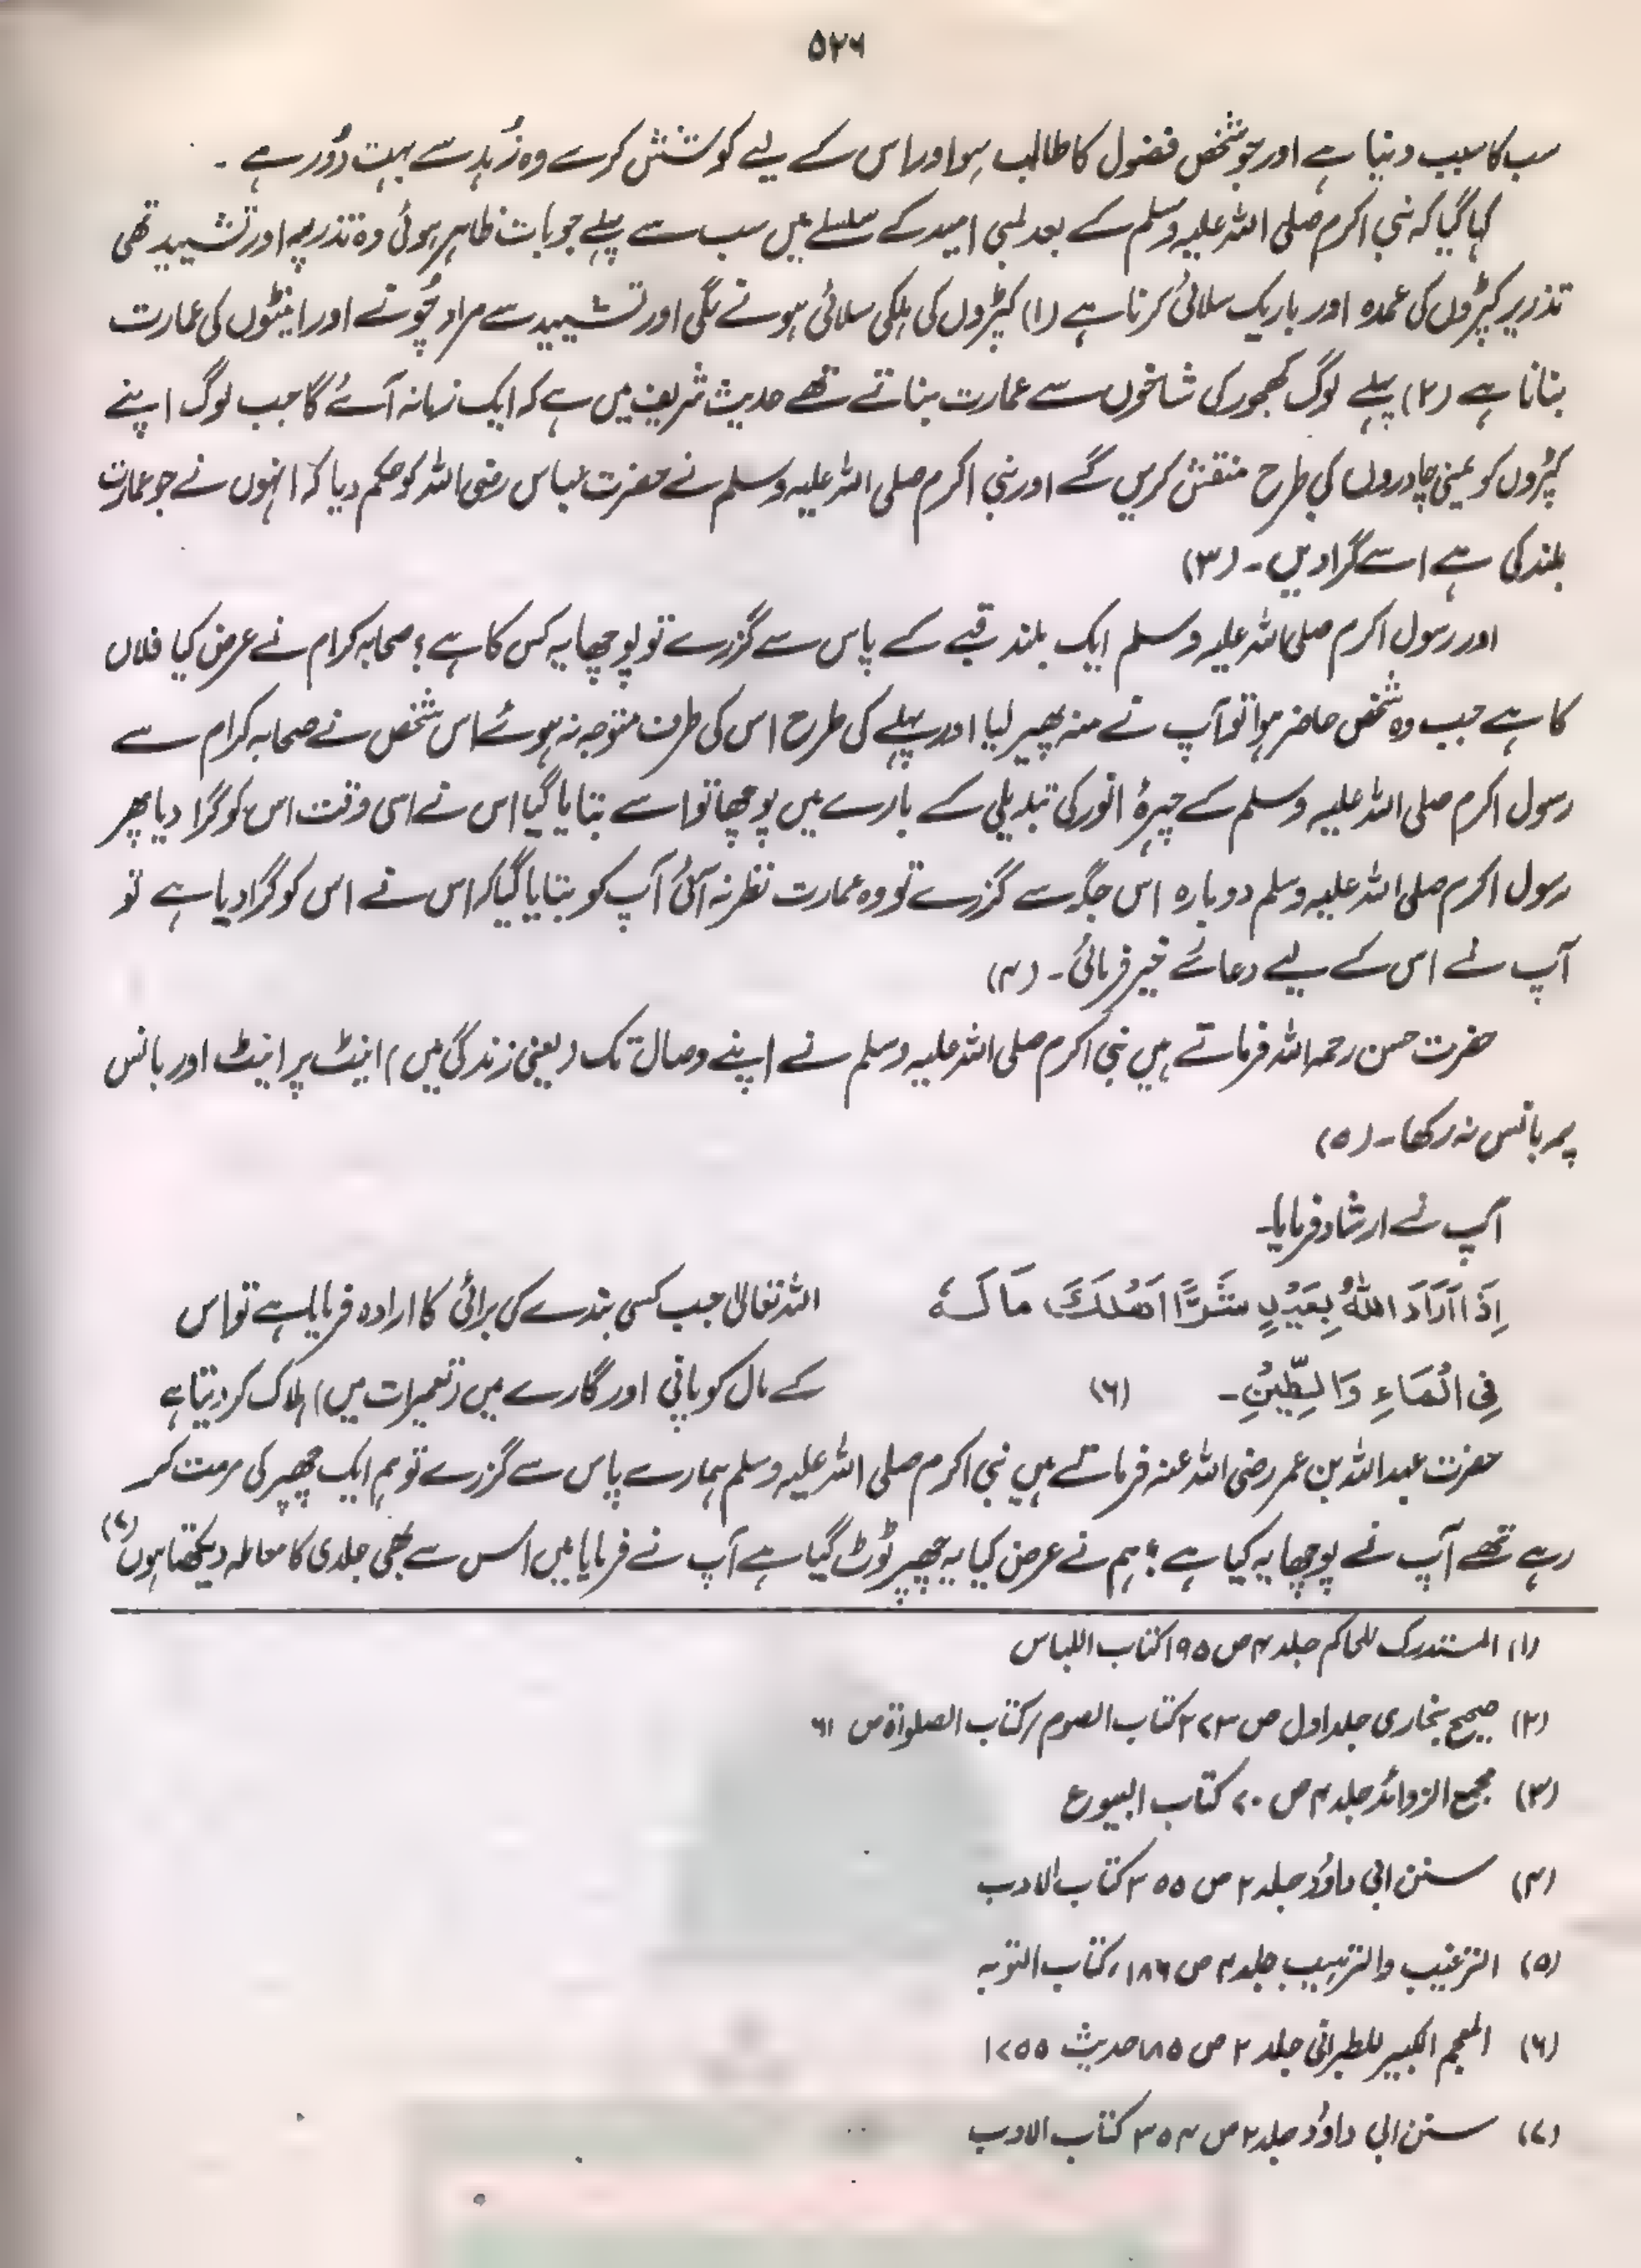 ۵۲۶
سب کا سبب دنیا ہے اور جو شخص فضول کا طالب ہو اور اس کے لیے کوشش کرے وہ زُہد سے بہت دُور ہے ۔
کہا گیا کہ نبی اکرم صلی اللہ علیہ وسلم کے بعد لمبی امید کے سلسلے میں سب سے پہلے جو بات ظاہر ہوئی وہ تذریہ اور تشیید تھی
تذریر کپڑوں کی عمدہ اور باریک سلائی کرنا ہے (۱) کپڑوں کی ہلکی سلائی ہونے لگی اور تشیید سے مراد چُونے اور اینٹوں کی عمارت
بنانا ہے (۲) پہلے لوگ کھجور کی شاخوں سے عمارت بناتے تھے حدیث شریف میں ہے کہ ایک زمانہ آئے گا جب لوگ اپنے
کپڑوں کو یمنی چادروں کی طرح منقش کریں گے اور نبی اکرم صلی اللہ علیہ وسلم نے حضرت عباس رضی اللہ کو حکم دیا کہ انہوں نے جو عمارت
بلند کی ہے اسے گرا دیں ۔ (۳)
اور رسول اکرم صلی اللہ علیہ وسلم ایک بلند قبے کے پاس سے گزرے تو پوچھا یہ کس کا ہے ؟ صحابہ کرام نے عرض کیا فلاں
کا ہے جب وہ شخص حاضر ہوا تو آپ نے منہ پھیر لیا اور پہلے کی طرح اس کی طرف متوجہ نہ ہوئے اس شخص نے صحابہ کرام سے
رسول اکرم صلی اللہ علیہ وسلم کے چہرۂ انور کی تبدیلی کے بارے میں پوچھا تو اسے بتایا گیا اس نے اسی وقت اس کو گرا دیا پھر
رسول اکرم صلی اللہ علیہ وسلم دوبارہ اس جگہ سے گزرے تو وہ عمارت نظر نہ آئی آپ کو بتایا گیا کہ اس نے اس کو گرا دیا ہے تو
آپ نے اس کے لیے دعائے خیر فرمائی ۔ (۴)
حضرت حسن رحمہ اللہ فرماتے ہیں نبی اکرم صلی اللہ علیہ وسلم نے اپنے وصال تک (یعنی زندگی میں) اینٹ پر اینٹ اور بانس
پر بانس نہ رکھا ۔ (۵)
آپ نے ارشاد فرمایا۔
اِذَا اَرَادَ اللّٰهُ بِعَبْدٍ شَرًّا اَهْلَكَ مَالَهٗ
فِی الْمَاءِ وَالطِّیْنِ۔ (۶)
اللہ تعالیٰ جب کسی بندے کی برائی کا ارادہ فرماتا ہے تو اس
کے مال کو پانی اور گارے میں (تعمیرات میں) ہلاک کر دیتا ہے
حضرت عبداللہ بن عمر رضی اللہ عنہ فرماتے ہیں نبی اکرم صلی اللہ علیہ وسلم ہمارے پاس سے گزرے تو ہم ایک چھپر کی مرمت کر
رہے تھے آپ نے پوچھا یہ کیا ہے ؟ ہم نے عرض کیا یہ چھپر ٹوٹ گیا ہے آپ نے فرمایا میں اس سے بھی جلدی کا معاملہ دیکھتا ہوں (۷)
(۱) المستدرک للحاکم جلد ۴ ص ۱۹۵ کتاب اللباس
(۲) صحیح بخاری جلد اول ص ۲۷۳ کتاب الصوم / کتاب الصلواۃ ص ۶۱
(۳) مجمع الزوائد جلد ۴ ص ۷۰ کتاب البیوع
(۴) سنن ابی داؤد جلد ۲ ص ۳۵۵ کتاب الادب
(۵) الترغیب والترہیب جلد ۴ ص ۱۸۶، کتاب التوبہ
(۶) المعجم الکبیر للطبرانی جلد ۲ ص ۱۸۵ حدیث ۱۷۵۵
(۷) سنن ابی داؤد جلد ۲ ص ۳۵۴ کتاب الادب